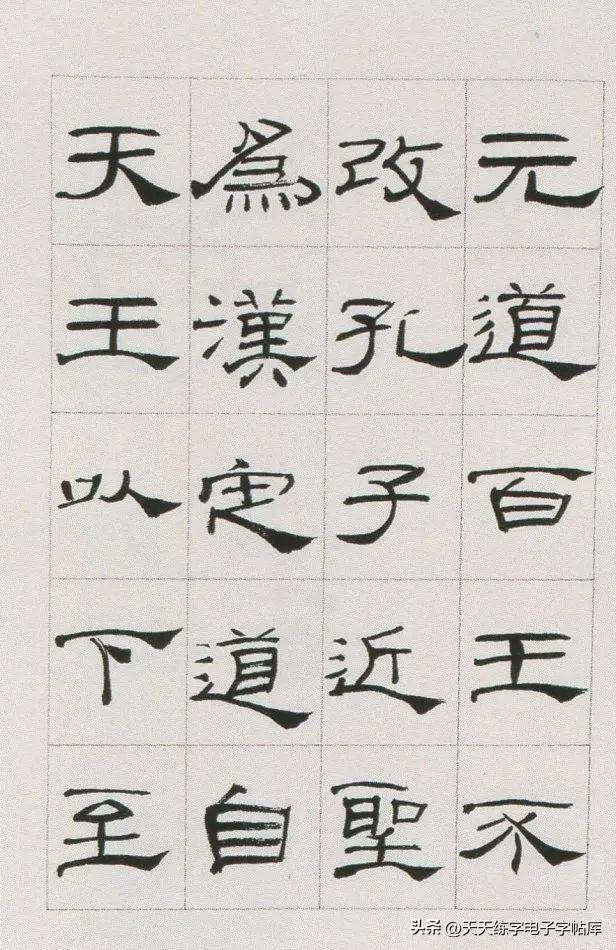 元道百王不
改孔子近聖
為漢定道自
天王以下至
头条 @天天练字电子字帖库